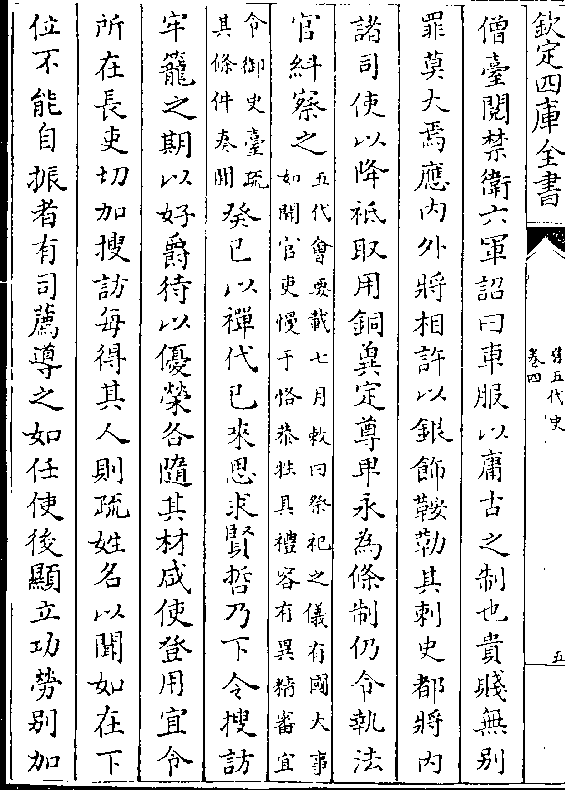 欽定四庫全書
舊五代史
卷四
五
僧臺閱禁衛六軍詔曰車服以庸古之制也貴賤無别
罪莫大焉應内外將相許以銀飾鞍勒其刺史都將内
諸司使以降祗取用銅冀定尊卑永為條制仍令執法
官糾察之五代會要載七月敕曰祭祀之儀有國大事
如聞官吏慢于恪恭牲具禮容有異精審宜
令御史臺疏
其條件奏聞癸巳以禪代已來思求賢哲乃下令搜訪
牢籠之期以好爵待以優榮各隨其材咸使登用宜令
所在長吏切加搜訪每得其人則疏姓名以聞如在下
位不能自振者有司薦導之如任使後顯立功勞别加